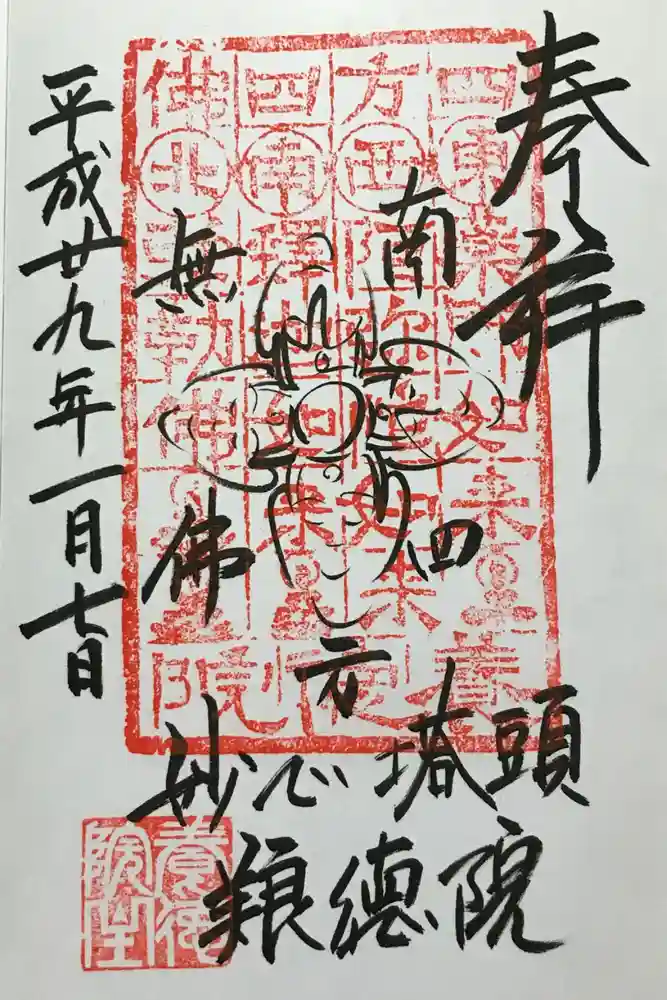 奉拝
南無
四方佛
妙心塔頭
養徳院
平成廿九年一月七日
四方四佛
東薬師如来
西阿弥陀如来
南釋迦如来
北弥勒佛
養徳院
養徳院